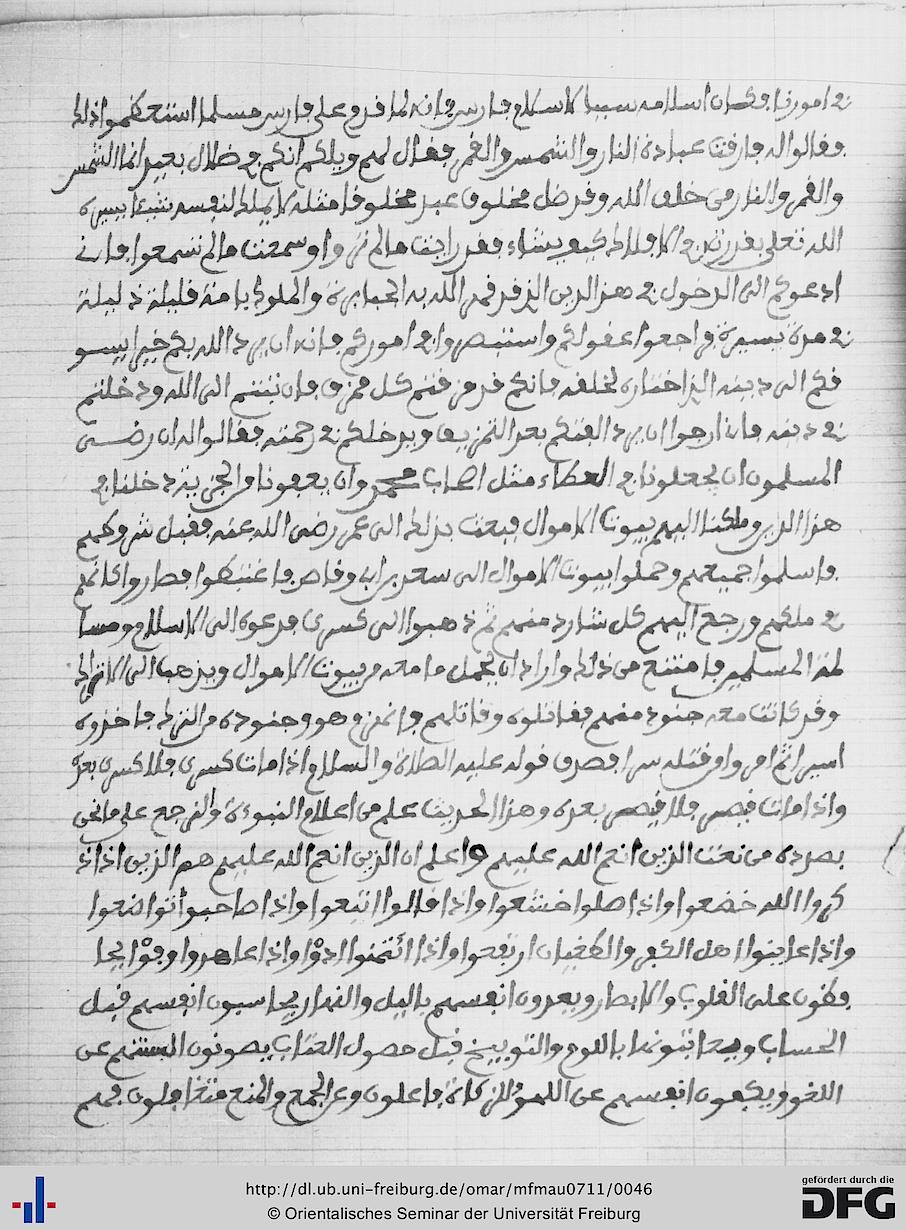 في امورنا فكان اسلامه سببا لاسلام فارس فانه لما قدم على فارس مسلما استعظموا ذلك
وقالوا له فارقت عبادة النار والشمس والقمر فقال لهم ويلكم انكم في ضلال بعيد انما الشمس
والقمر والنار من خلق الله وقد ضل مخلوق عبد مخلوقا مثله لا يملك لنفسه شيئا يسيره
الله تعلى بقدرته في الافلاك كيف يشاء فقد رايت ما لم تروا وسمعت ما لم تسمعوا فاني
ادعوكم الى الدخول في هذا الدين الذي قد قهر الله به الجبابرة والملوك بامة قليلة ذليلة
في مدة يسيرة فراجعوا عقولكم واستبصروا في اموركم فانه ان يرد الله بكم خيرا يسو
قكم الى دينه الذي اختاره لخلقه فانكم قد مزقتم كل ممزق فان تبتم الى الله ودخلتم
في دينه فانا ارجوا ان يرد الفتكم بعد التمزيق ويدخلكم في رحمته فقالوا له ان رضي
المسلمون ان يجعلونا في العطاء مثل اصحاب محمد وان يعفونا من الجزية دخلنا في
هذا الدين وملكنا اليهم بيوت الاموال فبعث بذلك الى عمر رضى الله عنه فقبل شروطهم
فاسلموا جميعهم وحملوا بيوت الاموال الى سعد بن ابي وقاص فاغتبطوا فصاروا كانهم
في ملكهم ورجع اليهم كل شارد منهم ثم ذهبوا الى كسرى فدعوه الى الاسلام ومسا
لمة المسلمين فامتنع من ذلك واراد ان يحمل ما معه من بيوت الاموال ويذهب الى الاتراك
وقد كانت معه جنود منهم فقاتلوه وقاتلهم فانهزم هو وجنوده من الترك فاخذوه
اسيرا ثم امر وامر قتله سرا فصدق قوله عليه الصلاة والسلام اذا مات كسرى فلا كسرى بعده
واذا مات قيصر فلا قيصر بعده وهذا الحديث علم من اعلام النبوءة ولنرجع على ما نحن
بصدده من نعت الذين انعم الله عليهم واعلم ان الذين انعم الله عليهم هم الذين اذا ذ
كروا الله خضعوا واذا صلوا خشعوا واذا قالوا اتبعوا واذا صاحبوا تواضعوا
واذا عاينوا اهل الكفر والطغيان ارتفعوا واذا ائتمنوا ادوا واذا عاهدوا وفوا يحا
فظون على القلوب والابصار ويعدون انفسهم باليل والنهار يحاسبون انفسهم قبل
الحساب ويعاتبونها باللوم والتوبيخ قبل حصول العقاب يصونون السنتهم عن
اللغو ويكفون انفسهم عن اللهو للزكاة فاعلون وعن الجمع والمنع متغافلون فهم
http://dl.ub.uni-freiburg.de/omar/mfmau0711/0046
© Orientalisches Seminar der Universität Freiburg
gefördert durch die
DFG